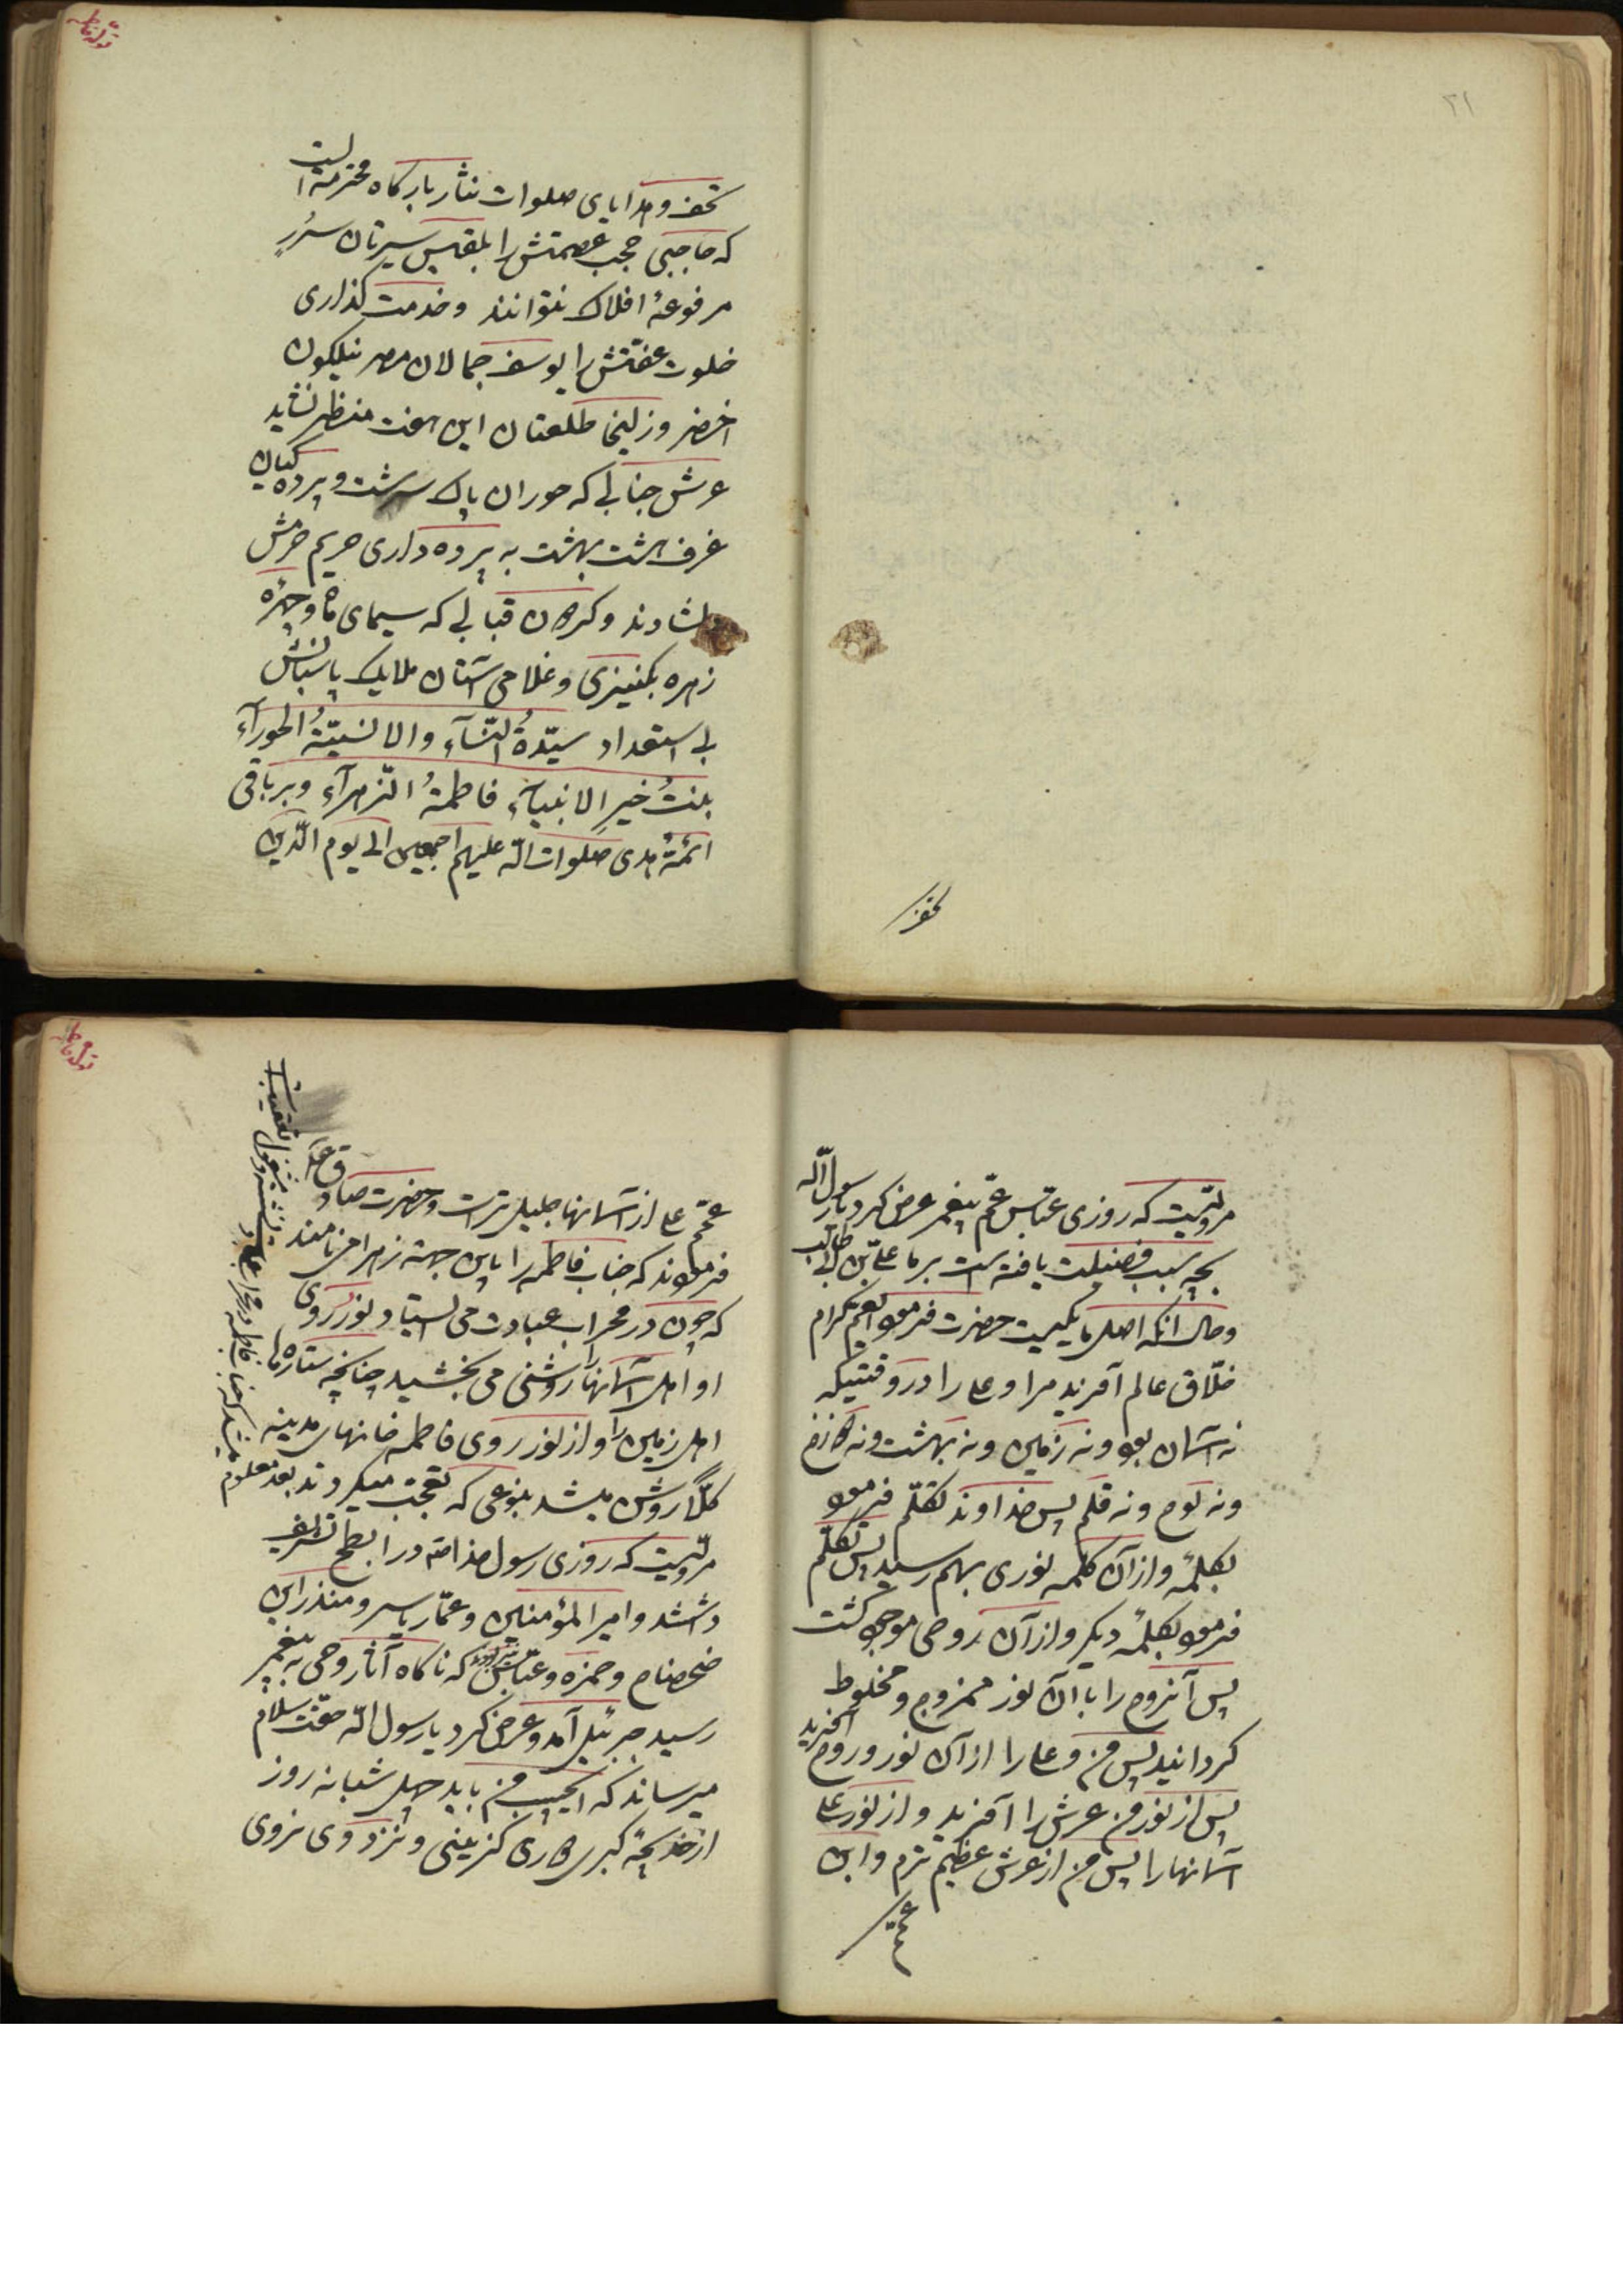 ۲۱
تحف
تولد فاطمه
تحف و هدایای صلوات نثار بارکاه محترمه است
که حاجبی حجب عصمتش را بلقیس سیرتان سُرُرِ
مرفوعهٔ افلاک نتوانند و خدمت کذاری
خلوت عفّتش را یوسف جمالان مصر نیلکون
اخضر و زلیخا طلعتان این هفت منظر نشاید
عرش جنابی که حوران پاک سرشت و پرده کیان
غرف هشت بهشت به پرده داری حریم حرمش
دلشادند و کردون قبابی که سیمای ماه و چهرهٔ
زهره بکنیزی و غلامی آستان ملایک پاسبانش
بی استعداد سیّدةُ النّسآءِ والانسیّةُ الحورآءِ
بنتُ خیرِ الانبیآءِ فاطمةُ الزّهرآءِ و بر باقی
ائمّهٔ هدی صلوات الله علیهم اجمعین الی یوم الدّین
مرویّست که روزی عبّاس عمّ پیغمبر عرض کرد یا رسول الله
بچه سبب فضیلت یافته است بر ما علیّ بن ابی طالب
و حال آنکه اصل ما یکیست حضرت فرمود ایعم کرام
خلّاق عالم آفرید مرا و علی را در وقتیکه
نه آسمان بود و نه زمین و نه بهشت و نه
و نه لوح و نه قلم پس خداوند تکلّم فرمود
بکلمهٔ و از آن کلمه نوری بهم رسید پس تکلّم
فرمود بکلمهٔ دیکر و از آن روحی موجود کشت
پس آنروح را با آن نور ممزوج و مخلوط
کردانید پس من و علی را از آن نور و روح آفرید
پس از نور من عرش را آفرید و از نور علی
آسمانها را پس من از عرش عظیم ترم و ابن
عمّم
تولد فاطمه
عمّم علی از آسمانها جلیل تر است و حضرت صادق ع
فرمودند که جناب فاطمه را باین جهة زهرا می نامند
که چون در محراب عبادت می ایستاد نور روی
او اهل آسمانها را روشنی می بخشید چنانچه ستاره ها
اهل زمین را و از نور روی فاطمه خانهای مدینه
کلّاً روشن میشد بنوعی که تعجّب میکردند بعد معلوم
میشد که جناب فاطمه در محراب عبادت نشسته مشغول تعقیب است
مرویّست که روزی رسول خدا ص در ابطح تشریف
داشتند و امیر المؤمنین و عمّار یاسر و منذر ابن
ضحضاح و حمزه و عبّاس که ناکاه آثار وحی به پیغمبر
رسید جبرئیل آمد و عرض کرد یا رسول الله حقّت سلام
میرساند که ایحبیب من باید چهل شبانه روز
از خدیجهٔ کبری کناری کزینی و نزد وی نروی